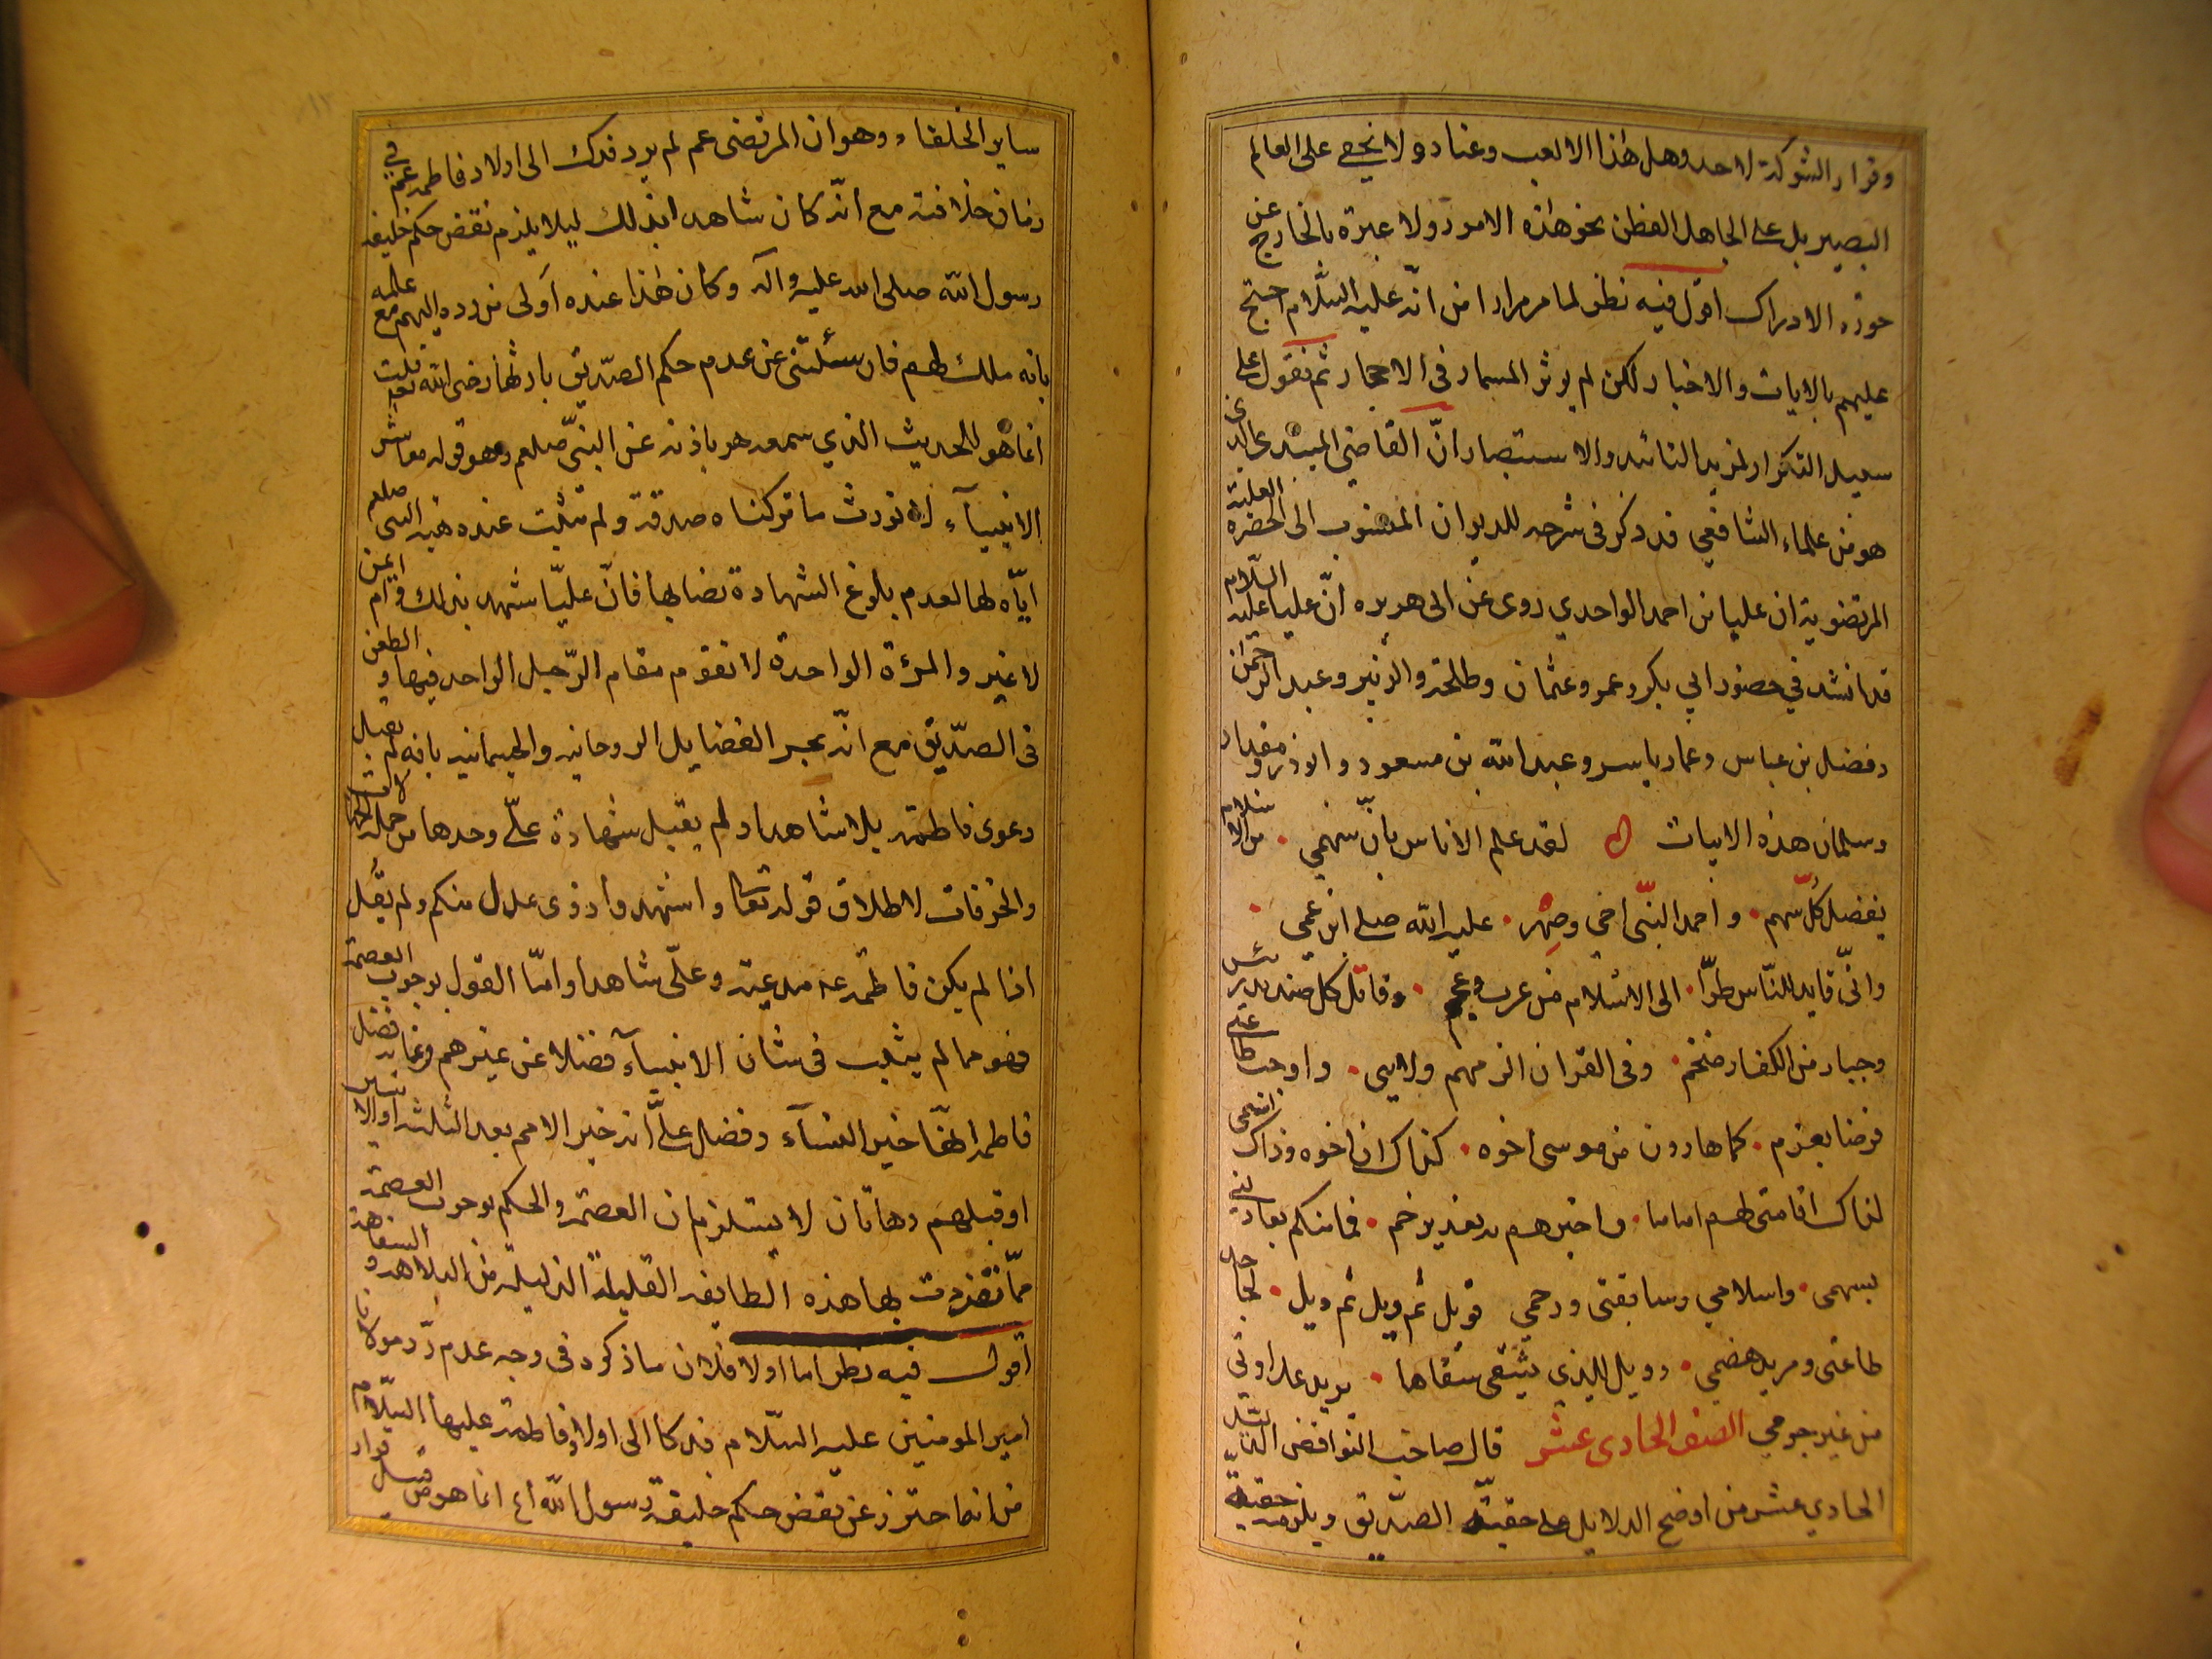 وقرار الشوكة لاحد وهل هذا الا لعب وعناد ولا يخفى على العالم
البصير بل على الجاهل الفطن نحو هذه الامور ولا عبرة بالخارج عن
حوزه الادراك اقول فيه نظر لما مر مرارا من انّه عليه السّلام احتج
عليهم بالايات والاخبار لكن لم يوثر المسمار فى الاحجار ثم نقول على
سبيل التكرار لمزيد التائيد والاستبصار انّ القاضي الميبدى الذى
هو من علماء الشافعي قد ذكر فى شرحه للديوان المنسوب الى الحضرة العلية
المرتضوية ان عليا بن احمد الواحدي روى عن ابى هريره انّ عليا عليه السّلام
قد انشد في حضور ابي بكر وعمر وعثمان وطلحة والزبير وعبد الرحمن
وفضل بن عباس وعمار ياسر وعبد الله بن مسعود وابوذر ومقداد
وسلمان هذه الابيات لقد علم الاناس بانّ سهمي من الاسلام
يفضل كلّ سهم واحمد النبّى اخي وصهر عليه الله صلى ابن عمي
وانّى قايد للنّاس طرّا الى الاسلام من عرب وعجم وقاتل كل صنديد رئيس
وجبار من الكفار ضخم وفى القران الزمهم ولايى واوجب طاعتى
فرضا بعزم كما هارون من موسى اخوه كذاك انا اخوه وذاك اسمى
لذاك اقامتى لهم اماما واخبرهم به بغدير خم فمن منكم يعادلنى
بسهمى واسلامي وسابقتى ورحمي فويل ثم ويل ثم ويل لجاحد
طاعتى ومريد هضمي وويل للذي يشقى سفاها يريد عداوتى
من غير جرمي الصنف الحادى عشر قال صاحب النواقض الدّليل
الحادي عشر من اوضح الدلايل على حقيّة الصّديق ويلزمه حقية
ساير الخلفاء وهو ان المرتضى عم لم يرد فدك الى اولاد فاطمه عم في
زمان خلافته مع انّه كان شاهدا بذلك ليلا يلزم نقض حكم خليفه
رسول الله صلى الله عليه وآله وكان هذا عنده اولى من رده اليهم مع علمه
بانه ملك لهم فان سئلتنى عن عدم حكم الصّديق بارثها رضى الله عنه قلت
انما هو للحديث الذي سمعه هو باذنه عن النبّى صلعم وهو قوله معاشر
الانبيآء لا نورث ما تركناه صدقة ولم تثبت عنده هبة النبى صلعم
ايّاه لها لعدم بلوغ الشهادة نصابها فانّ عليّا شهد بذلك وام ايمن
لا غير والمرءة الواحدة لا تقوم مقام الرّجل الواحد فيها والطعن
فى الصدّيق مع انّه بحر الفضايل الروحانيه والجسمانيه بانه لم يقبل
دعوى فاطمة بلا شاهد ولم يقبل شهادة علّى وحدها من جملة
والخرفات لاطلاق قوله تعا واشهدوا ذوى عدل منكم ولم يقل
اذا لم يكن فاطمه عم مدعية وعلّى شاهدا وامّا القول بوجوب العصمة
فهو مما لم يثبت فى شان الانبيآء فضلا عن غيرهم وغاية فضل
فاطمه انهّا خير النسآء وفضل علّى انه خير الامم بعد الثلثه او الا
او قبلهم وهاتان لا يستلزمان العصمة والحكم بوجوب العصمة
ممّا تفردت بها هذه الطايفه القليلة الذليلة من البلاهة والسفاهة
اقول فيه نظر اما اولا فلان ما ذكره فى وجه عدم ردّ مولانا
امير المومنين عليه السّلام فدكا الى اولاد فاطمة عليها السّلام
من انه احترز عن نقض حكم خليفة رسول الله اع انما هو من قبيل قرار